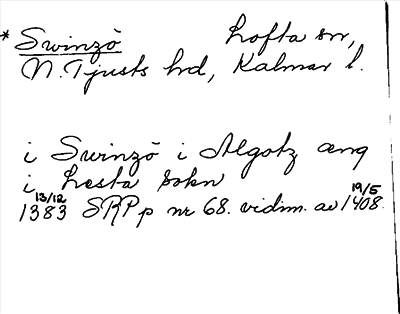 * Swinzö Lofta sn,
N. Tjusts hd, Kalmar l.
i Swinzö i Algotz æng
i Lesta sokn
13/12 1383 SRPp nr 68. vidim. av 19/5 1408.